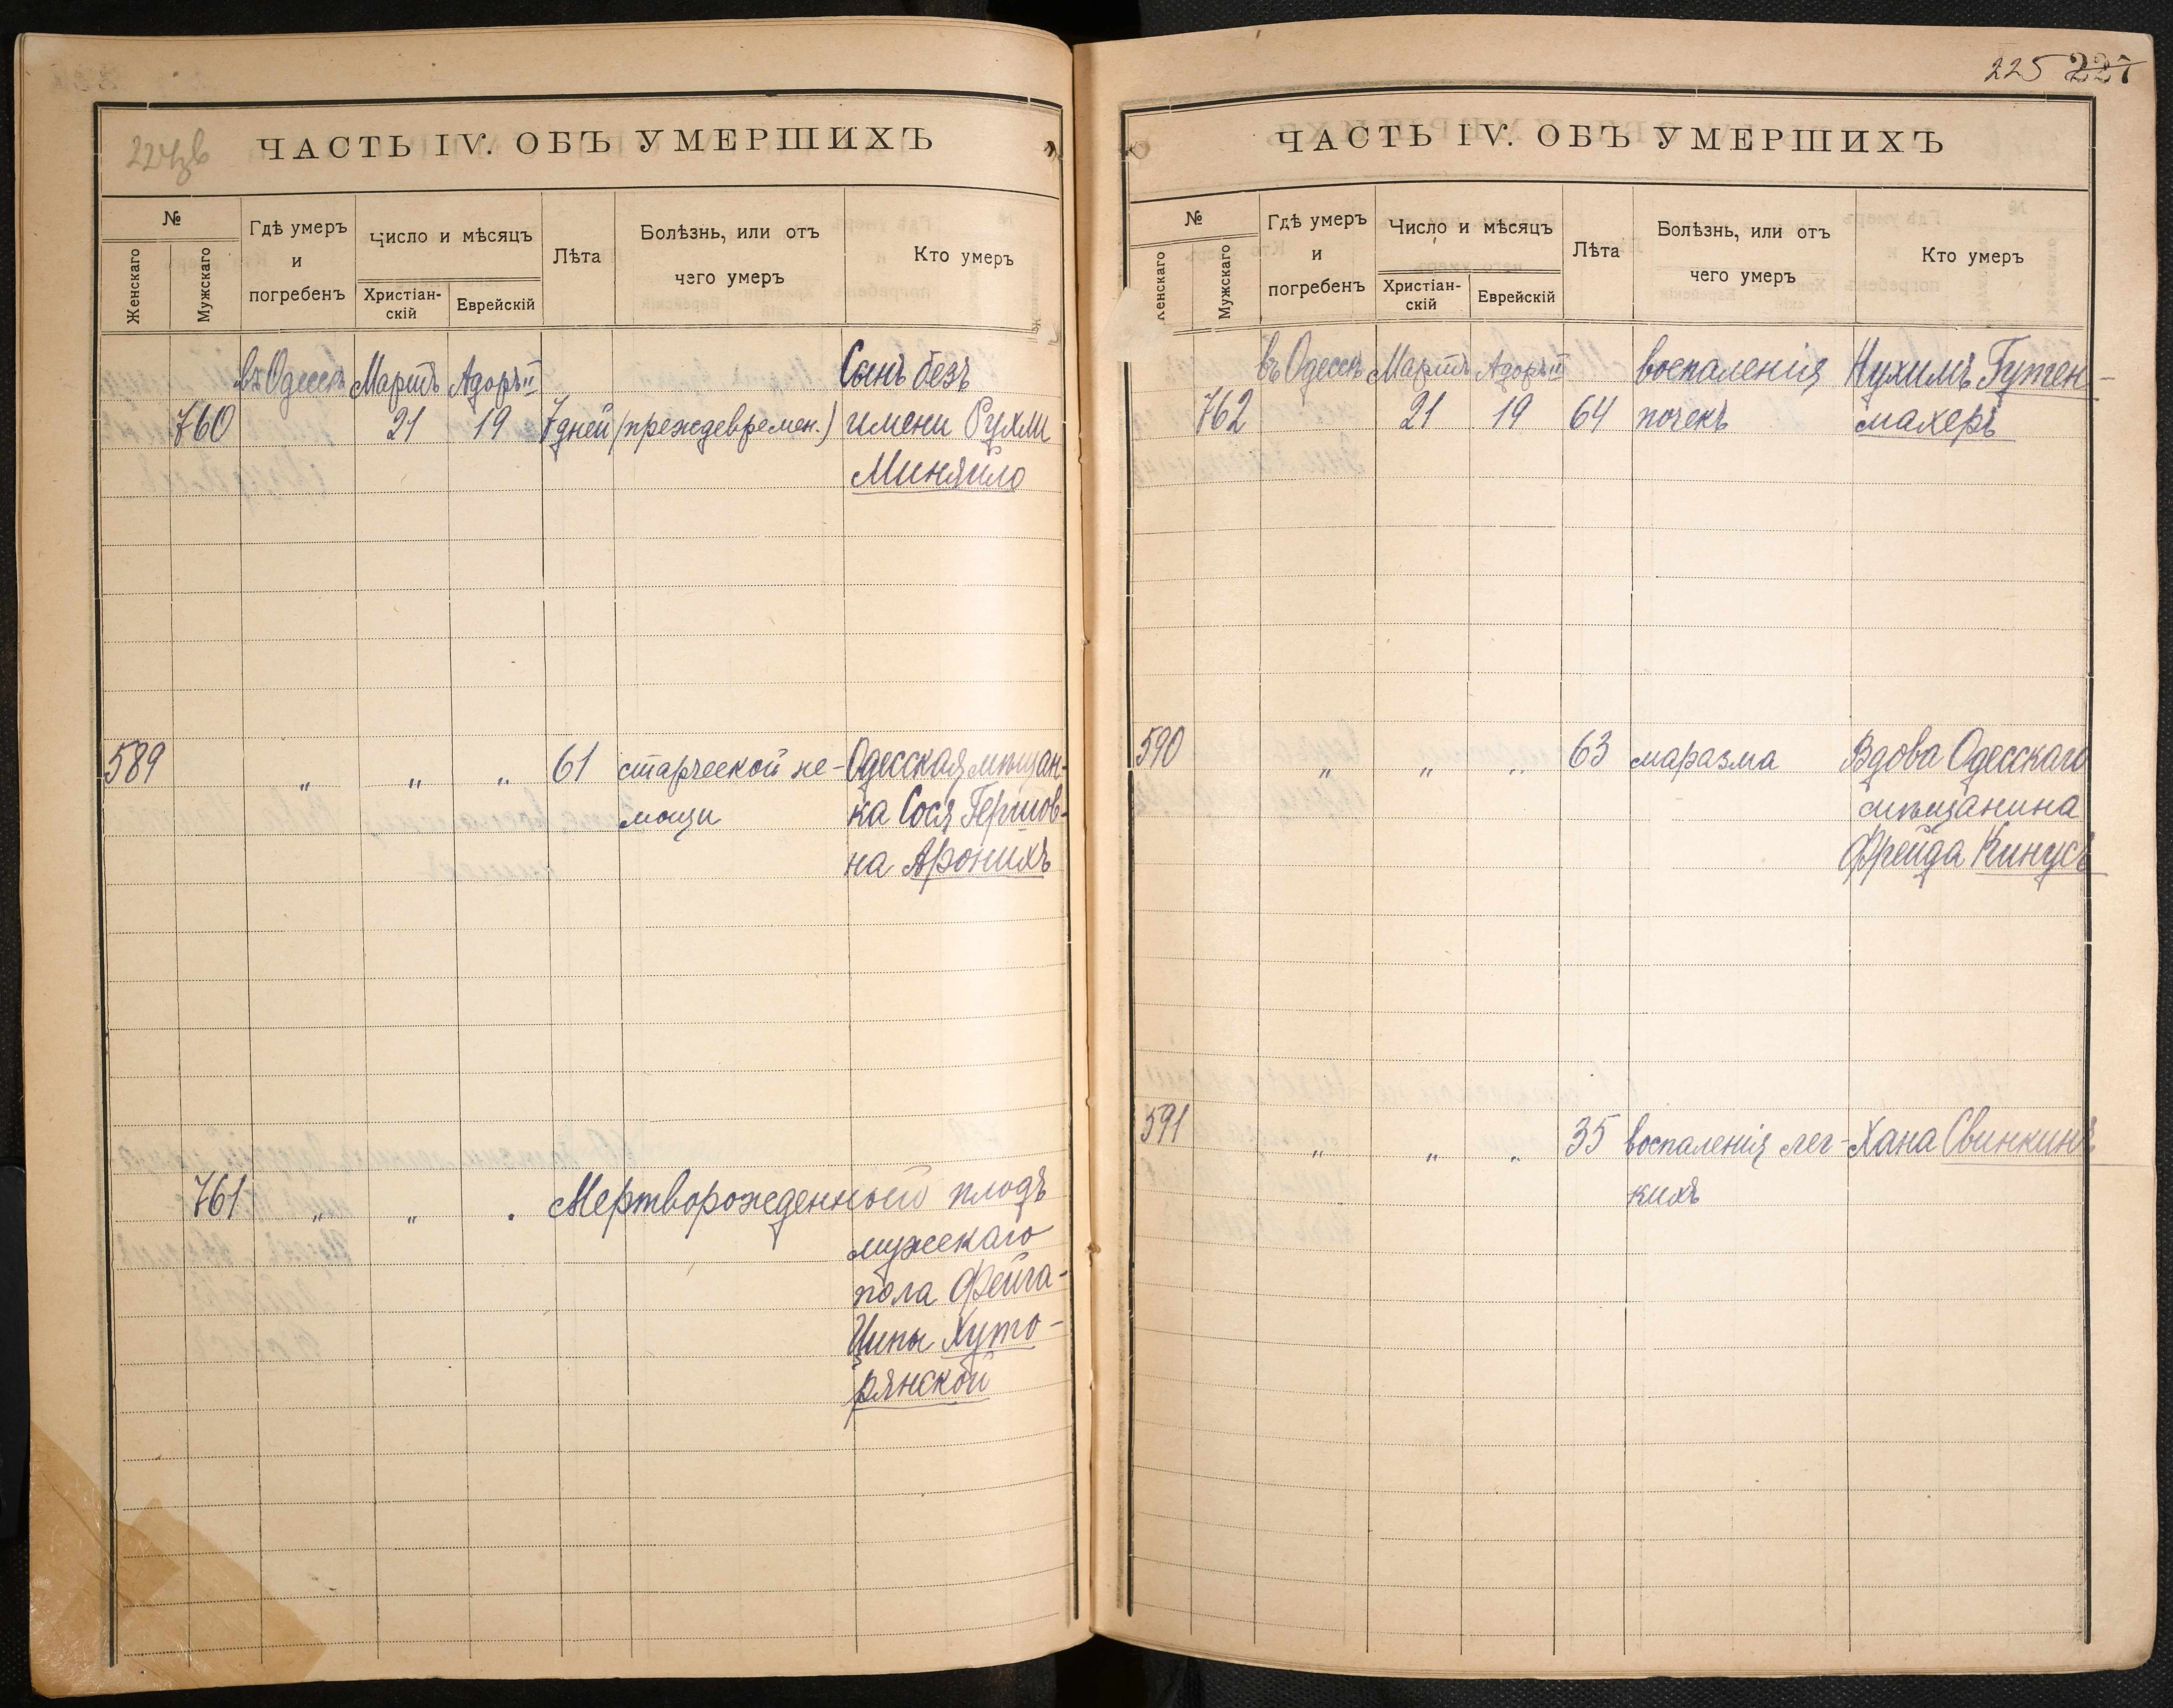 224зв
ЧАСТЬ IV. ОБЪ УМЕРШИХЪ
№
Женскаго
Мужскаго
Гдѣ умеръ
и
погребенъ
Число и мѣсяцъ
Христіан-
скій
Еврейскій
Лѣта
Болѣзнь, или отъ
чего умеръ
Кто умеръ
въ Одессѣ Мартъ Адоръ II Сынъ безъ
760 21 19 7 дней (преждевремен.) имени Рухли
Миняйло
589 " " " 61 старческой не- Одесская мѣщан-
мощи ка Сося Гершов-
на Аронихъ
761 " " " Мертворожденный плодъ
мужскаго
пола Фейга-
Ципы Хуто-
рянской
225 227
ЧАСТЬ IV. ОБЪ УМЕРШИХЪ
№
Женскаго
Мужскаго
Гдѣ умеръ
и
погребенъ
Число и мѣсяцъ
Христіан-
скій
Еврейскій
Лѣта
Болѣзнь, или отъ
чего умеръ
Кто умеръ
въ Одессѣ Мартъ Адоръ II воспаленія Нухимъ Гутен-
762 21 19 64 почекъ махеръ
590 " " " 63 маразма Вдова Одесскаго
мѣщанина
Фрейда Кинусъ
591 " " " 35 воспаленія лег- Хана Свинкинъ
кихъ